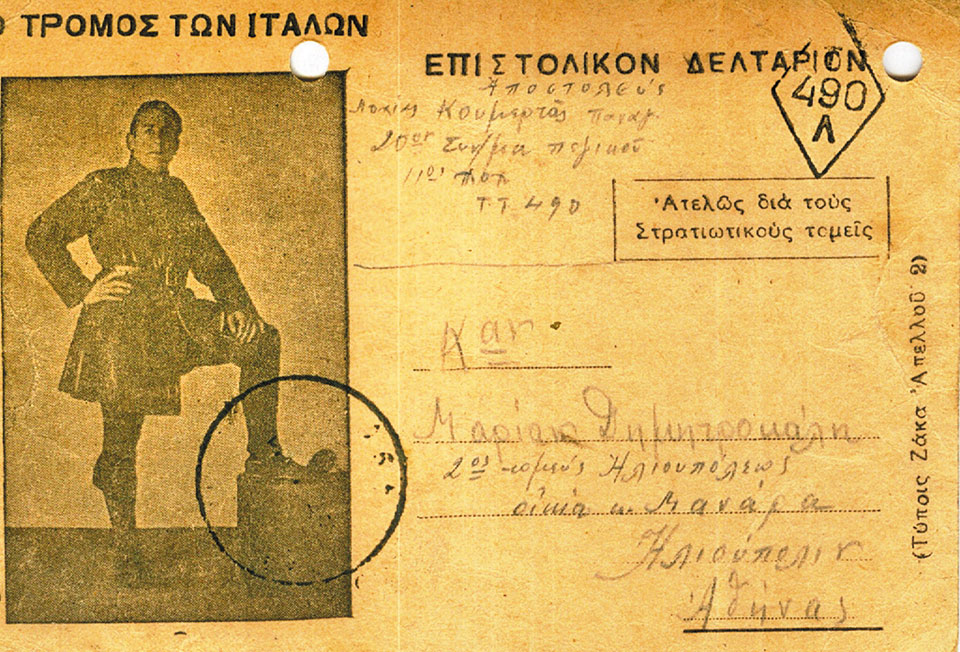 Ο ΤΡΟΜΟΣ ΤΩΝ ΙΤΑΛΩΝ
ΕΠΙΣΤΟΛΙΚΟΝ ΔΕΛΤΑΡΙΟΝ
Αποστολεύς
Κουμερτάς
20ον Συν/μα πεζικού
11ος
ΤΤ 490
490
Λ
Ἀτελῶς διὰ τοὺς
Στρατιωτικοὺς τομεῖς
Καν
Μαρίαν Δημητροκάλη
2ος τομεύς Ηλιουπόλεως
οἰκία Μανάρα
Ηλιούπολιν
Αθήνας
(Τύποις Ζάκα Ἀπελλοῦ 2)